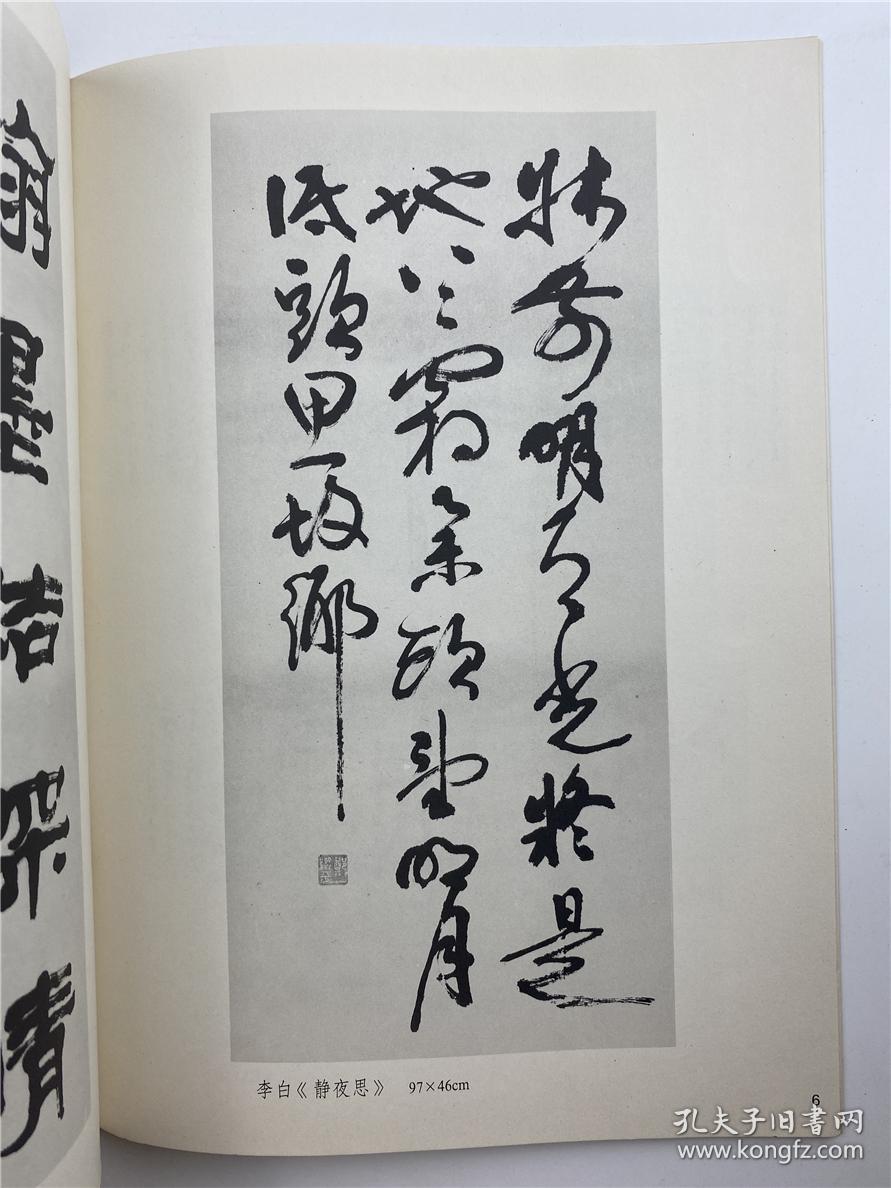 牀前明月光疑是
地上霜舉頭望明月
低頭思故鄉
李白《静夜思》 97×46cm
6
孔夫子旧书网
www.kongfz.com